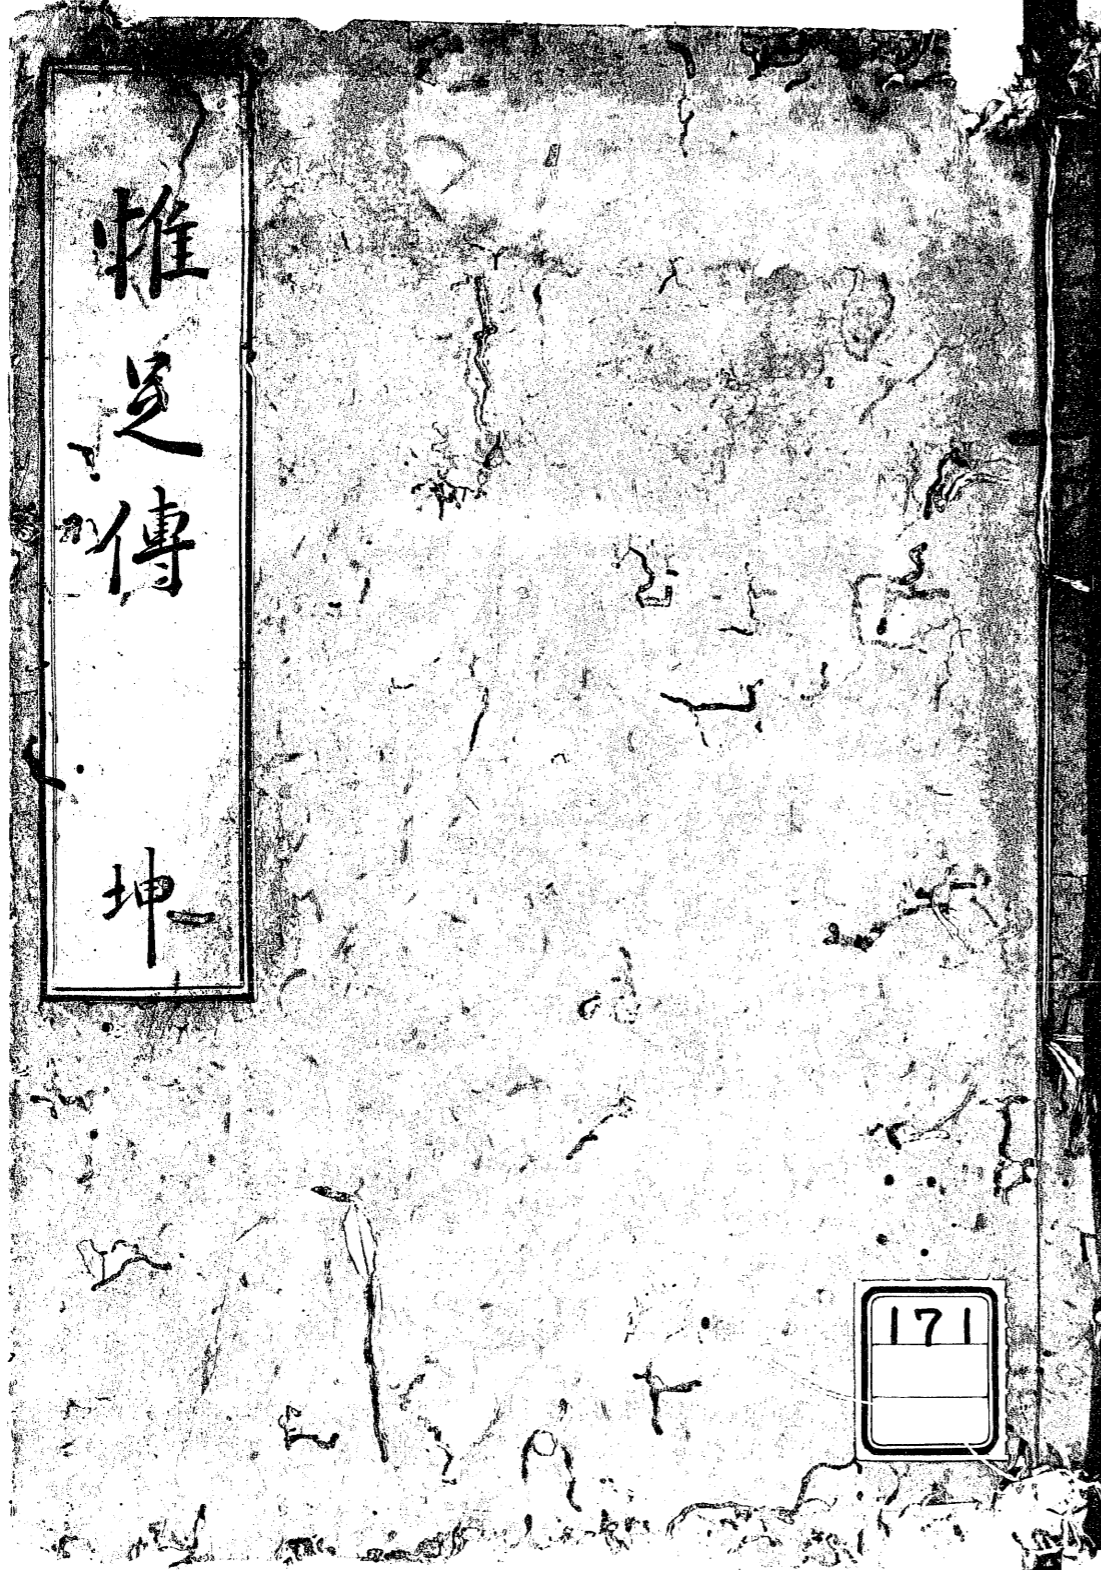 惟足傳 坤
171